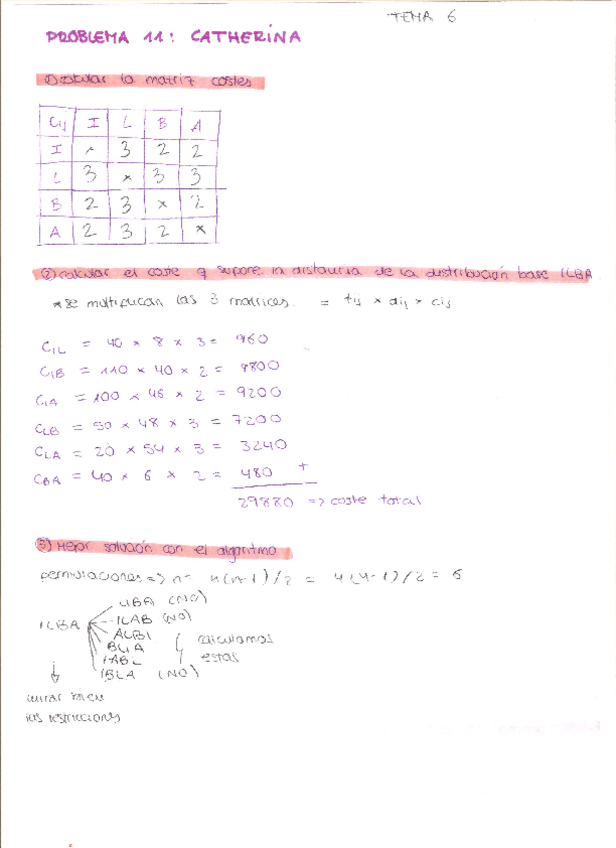 TEMA 6
PROBLEMA 11: CATHERINA
la matriz costes
Cij I L B A
I × 3 2 2
L 3 × 3 3
B 2 3 × 2
A 2 3 2 ×
② calcular el coste q supone la distancia de la distribución base ILBA
*se multiplican las 3 matrices. = tij × dij × cij
CIL = 40 × 8 × 3 = 960
CIB = 110 × 40 × 2 = 8800
CIA = 100 × 46 × 2 = 9200
CLB = 50 × 48 × 3 = 7200
CLA = 20 × 54 × 3 = 3240
CBA = 40 × 6 × 2 = 480 +
29880 => coste total
③ Mejor solución con el algoritmo
permutaciones => n = n(n-1)/2 = 4(4-1)/2 = 6
LIBA (NO)
ILAB (NO)
ILBA
ALBI
BLIA
IABL
calculamos
estas
IBLA (NO)
mirar bien
las restricciones